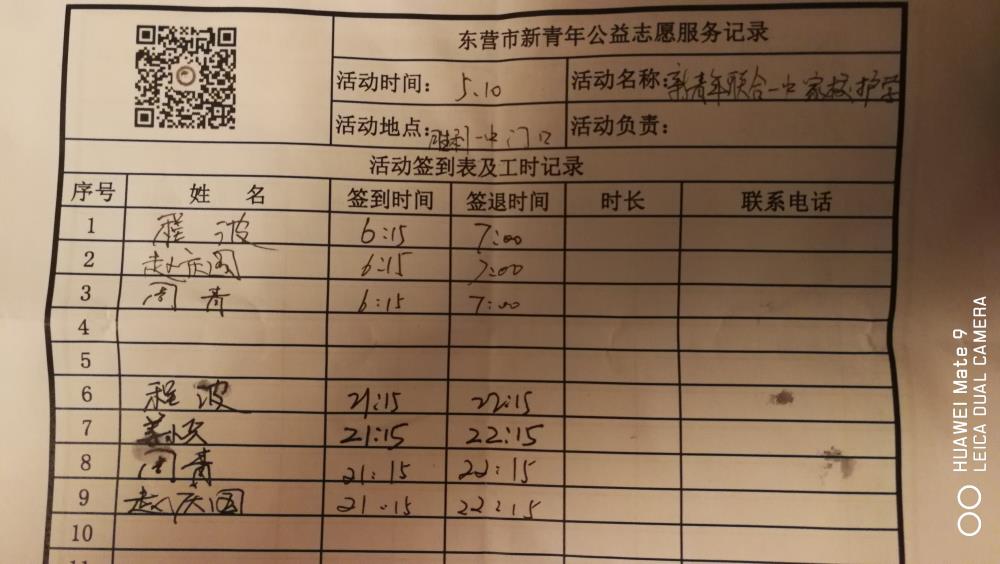 东营市新青年公益志愿服务记录
活动时间: 5.10 活动名称: 新青年联合一中家校护学
活动地点: 胜利一中门口 活动负责:
活动签到表及工时记录
序号 姓名 签到时间 签退时间 时长 联系电话
1 程波 6:15 7:00
2 赵庆国 6:15 7:00
3 周青 6:15 7:00
4
5
6 程波 21:15 22:15
7 21:15 22:15
8 周青 21:15 22:15
9 赵庆国 21:15 22:15
10
HUAWEI Mate 9
LEICA DUAL CAMERA